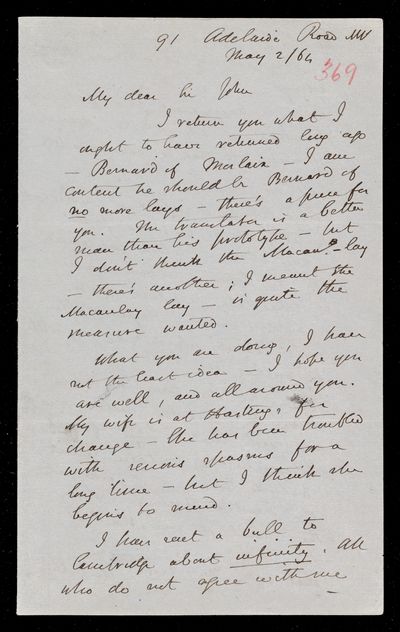 91 Adelaide Road NW
May 2/64
369
My dear Sir John
I return you what I
ought to have returned long ago
— Bernard of Morlaix — I am
content he should be Bernard of
no more lays — there's a pun for
you. The translator is a better
man than his prototype — but
I don't think the Macau? lay
— there's another; I meant the
Macaulay lay — is quite the
measure wanted.
What you are doing, I have
not the least idea — I hope you
are well, and all around you.
My wife is at Hastings for
change — She has been troubled
with spasms for a
long time — but I think she
begins to mend.
I have sent a bull to
Cambridge about infinity. All
who do not agree with me